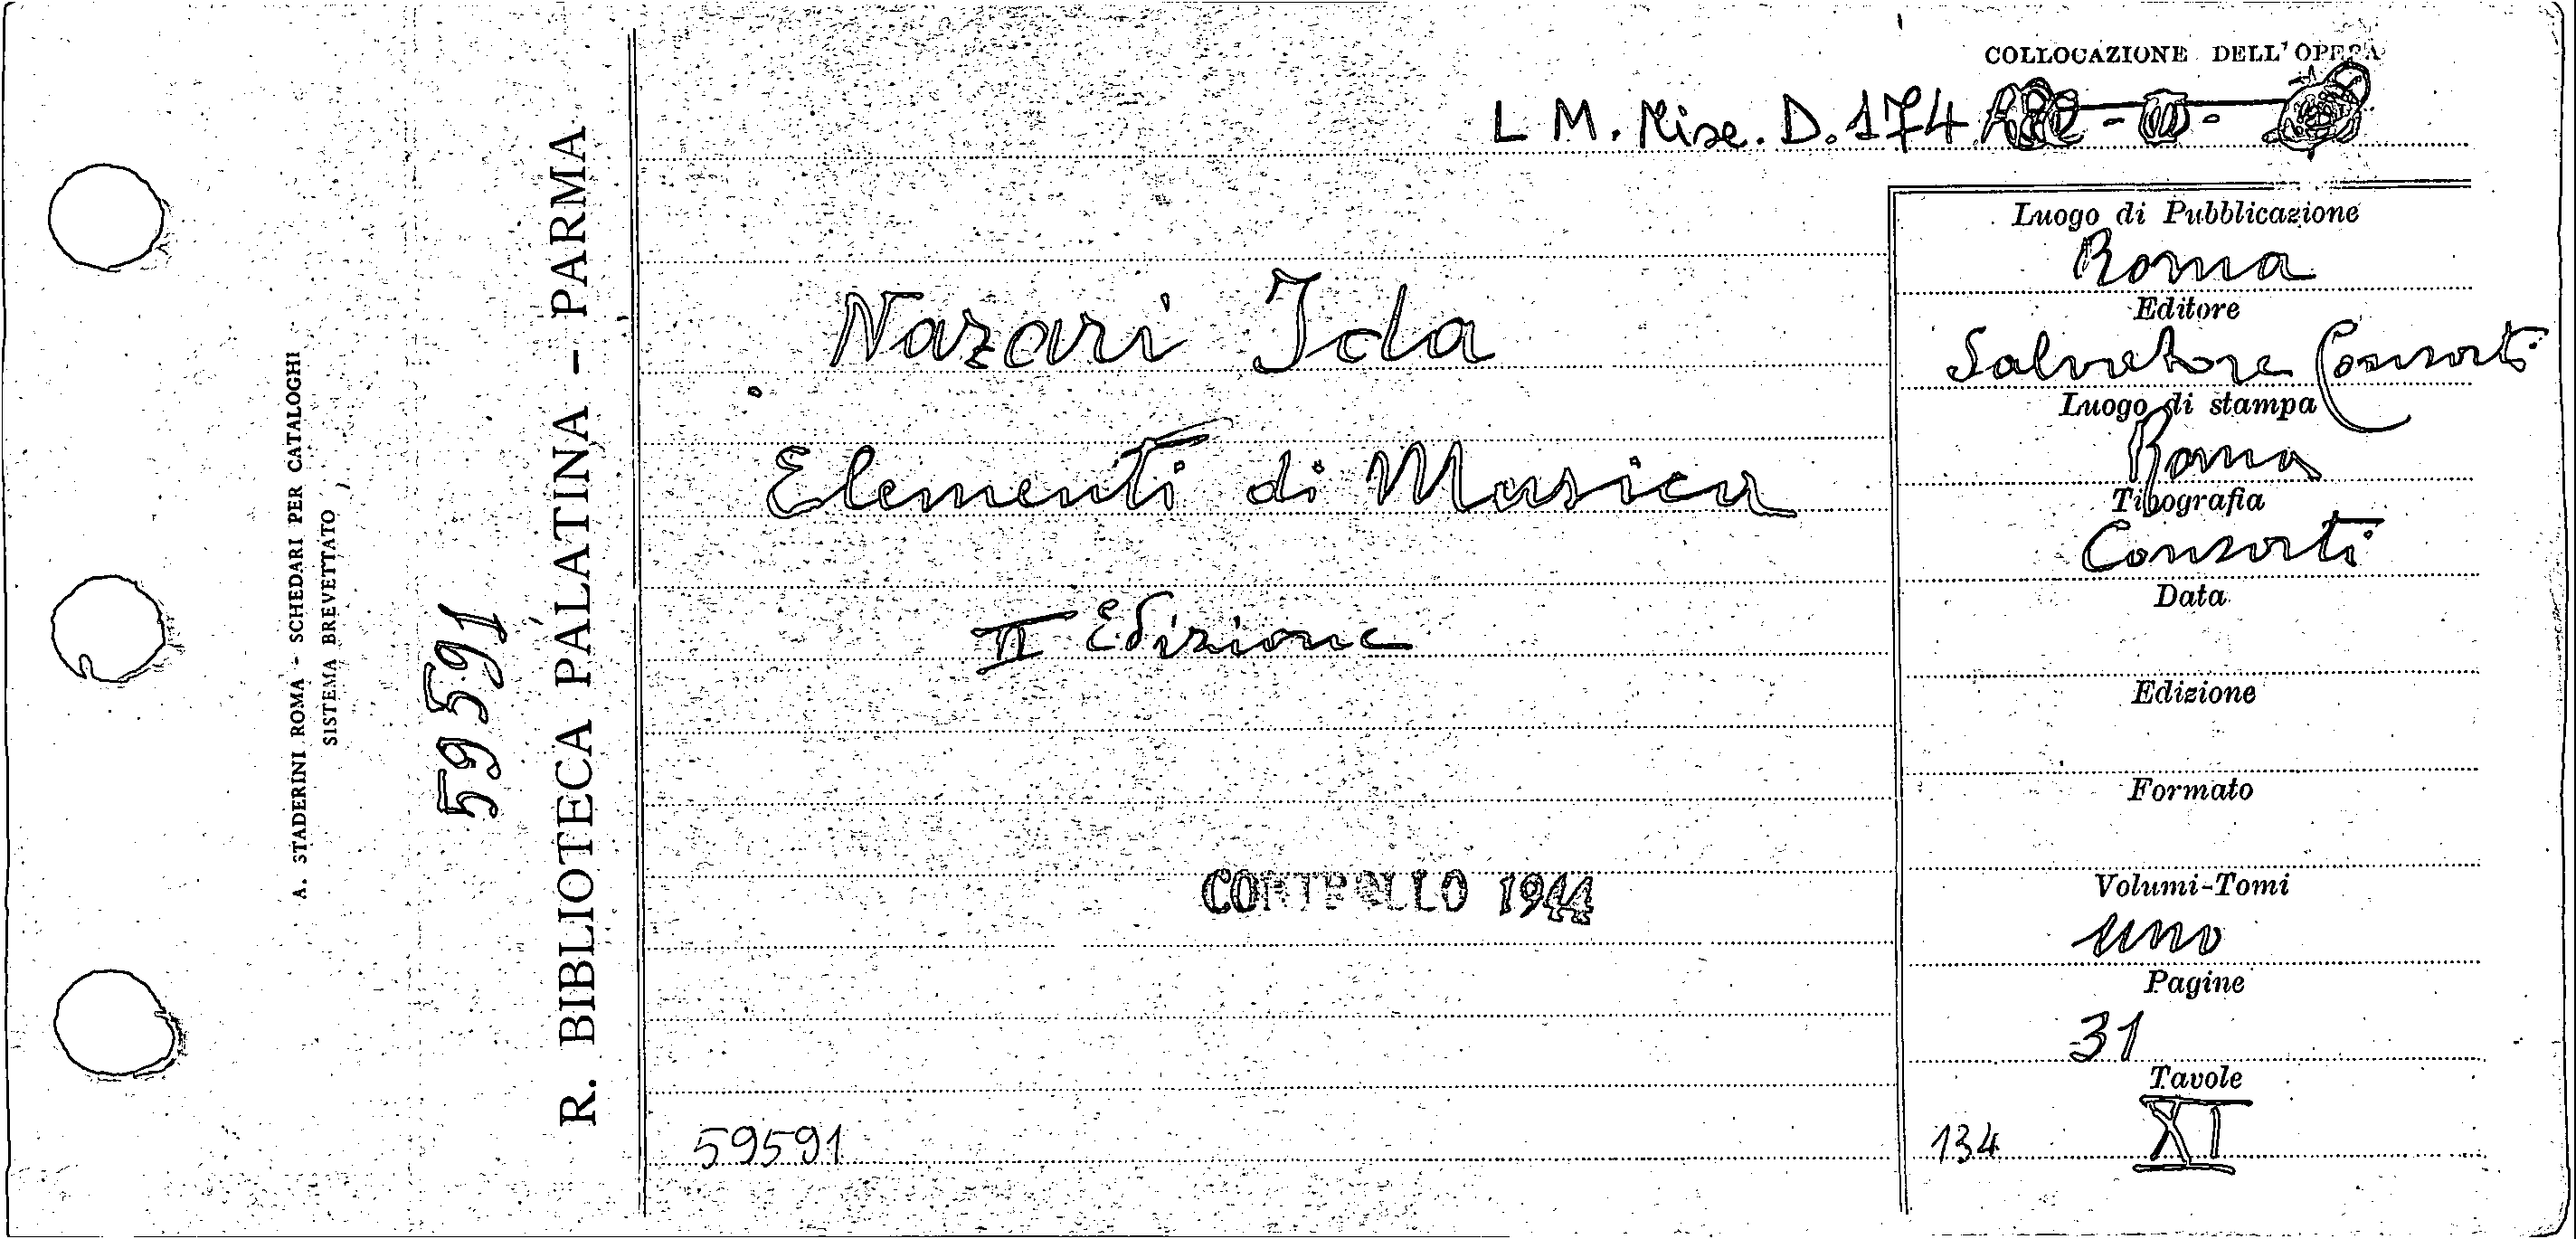 A. STADERINI ROMA - SCHEDARI PER CATALOGHI
SISTEMA BREVETTATO
59591
R. BIBLIOTECA PALATINA - PARMA
COLLOCAZIONE DELL'OPERA
L M. Misc. D. 174
Nazari Ida
Elementi di Musica
II Edizione
CONTROLLO 1944
59591
Luogo di Pubblicazione
Roma
Editore
Salvatore Consorti
Luogo di stampa
Roma
Tipografia
Consorti
Data
Edizione
Formato
Volumi-Tomi
uno
Pagine
31
Tavole
134 XI